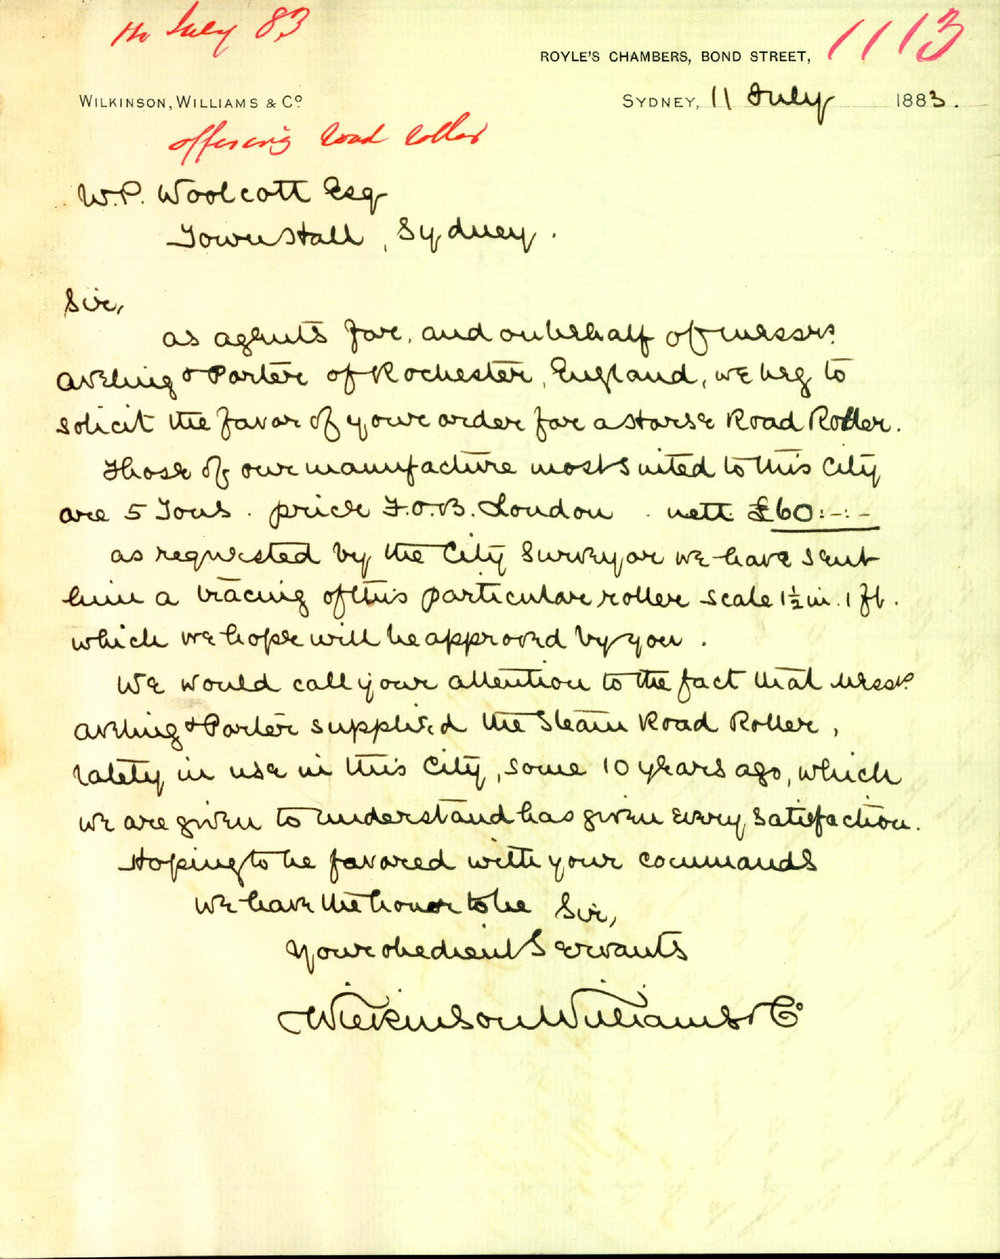 July 83
1113
ROYLE'S CHAMBERS, BOND STREET,
WILKINSON, WILLIAMS & Co.
SYDNEY, 11 July 1883.
offering Road Roller
W.P. Woolcott Esq
Town Hall, Sydney.
Sir,
as agents for, and on behalf of Messrs.
Aveling & Porter of Rochester, England, we beg to
solicit the favor of your order for a Horse Road Roller.
Those of our manufacture most suited to this City
are 5 Tons. price F.O.B. London. nett. £60:-:-
as requested by the City Surveyor we have sent
him a tracing of this particular roller scale 1½ in. 1 ft.
which we hope will be approved by you.
We would call your attention to the fact that Messrs
Aveling & Porter supplied the Steam Road Roller,
lately in use in this City, some 10 years ago, which
we are given to understand has given every satisfaction.
Hoping to be favored with your commands
we have the honor to be Sir,
Your obedient Servants
Wilkinson Williams & Co